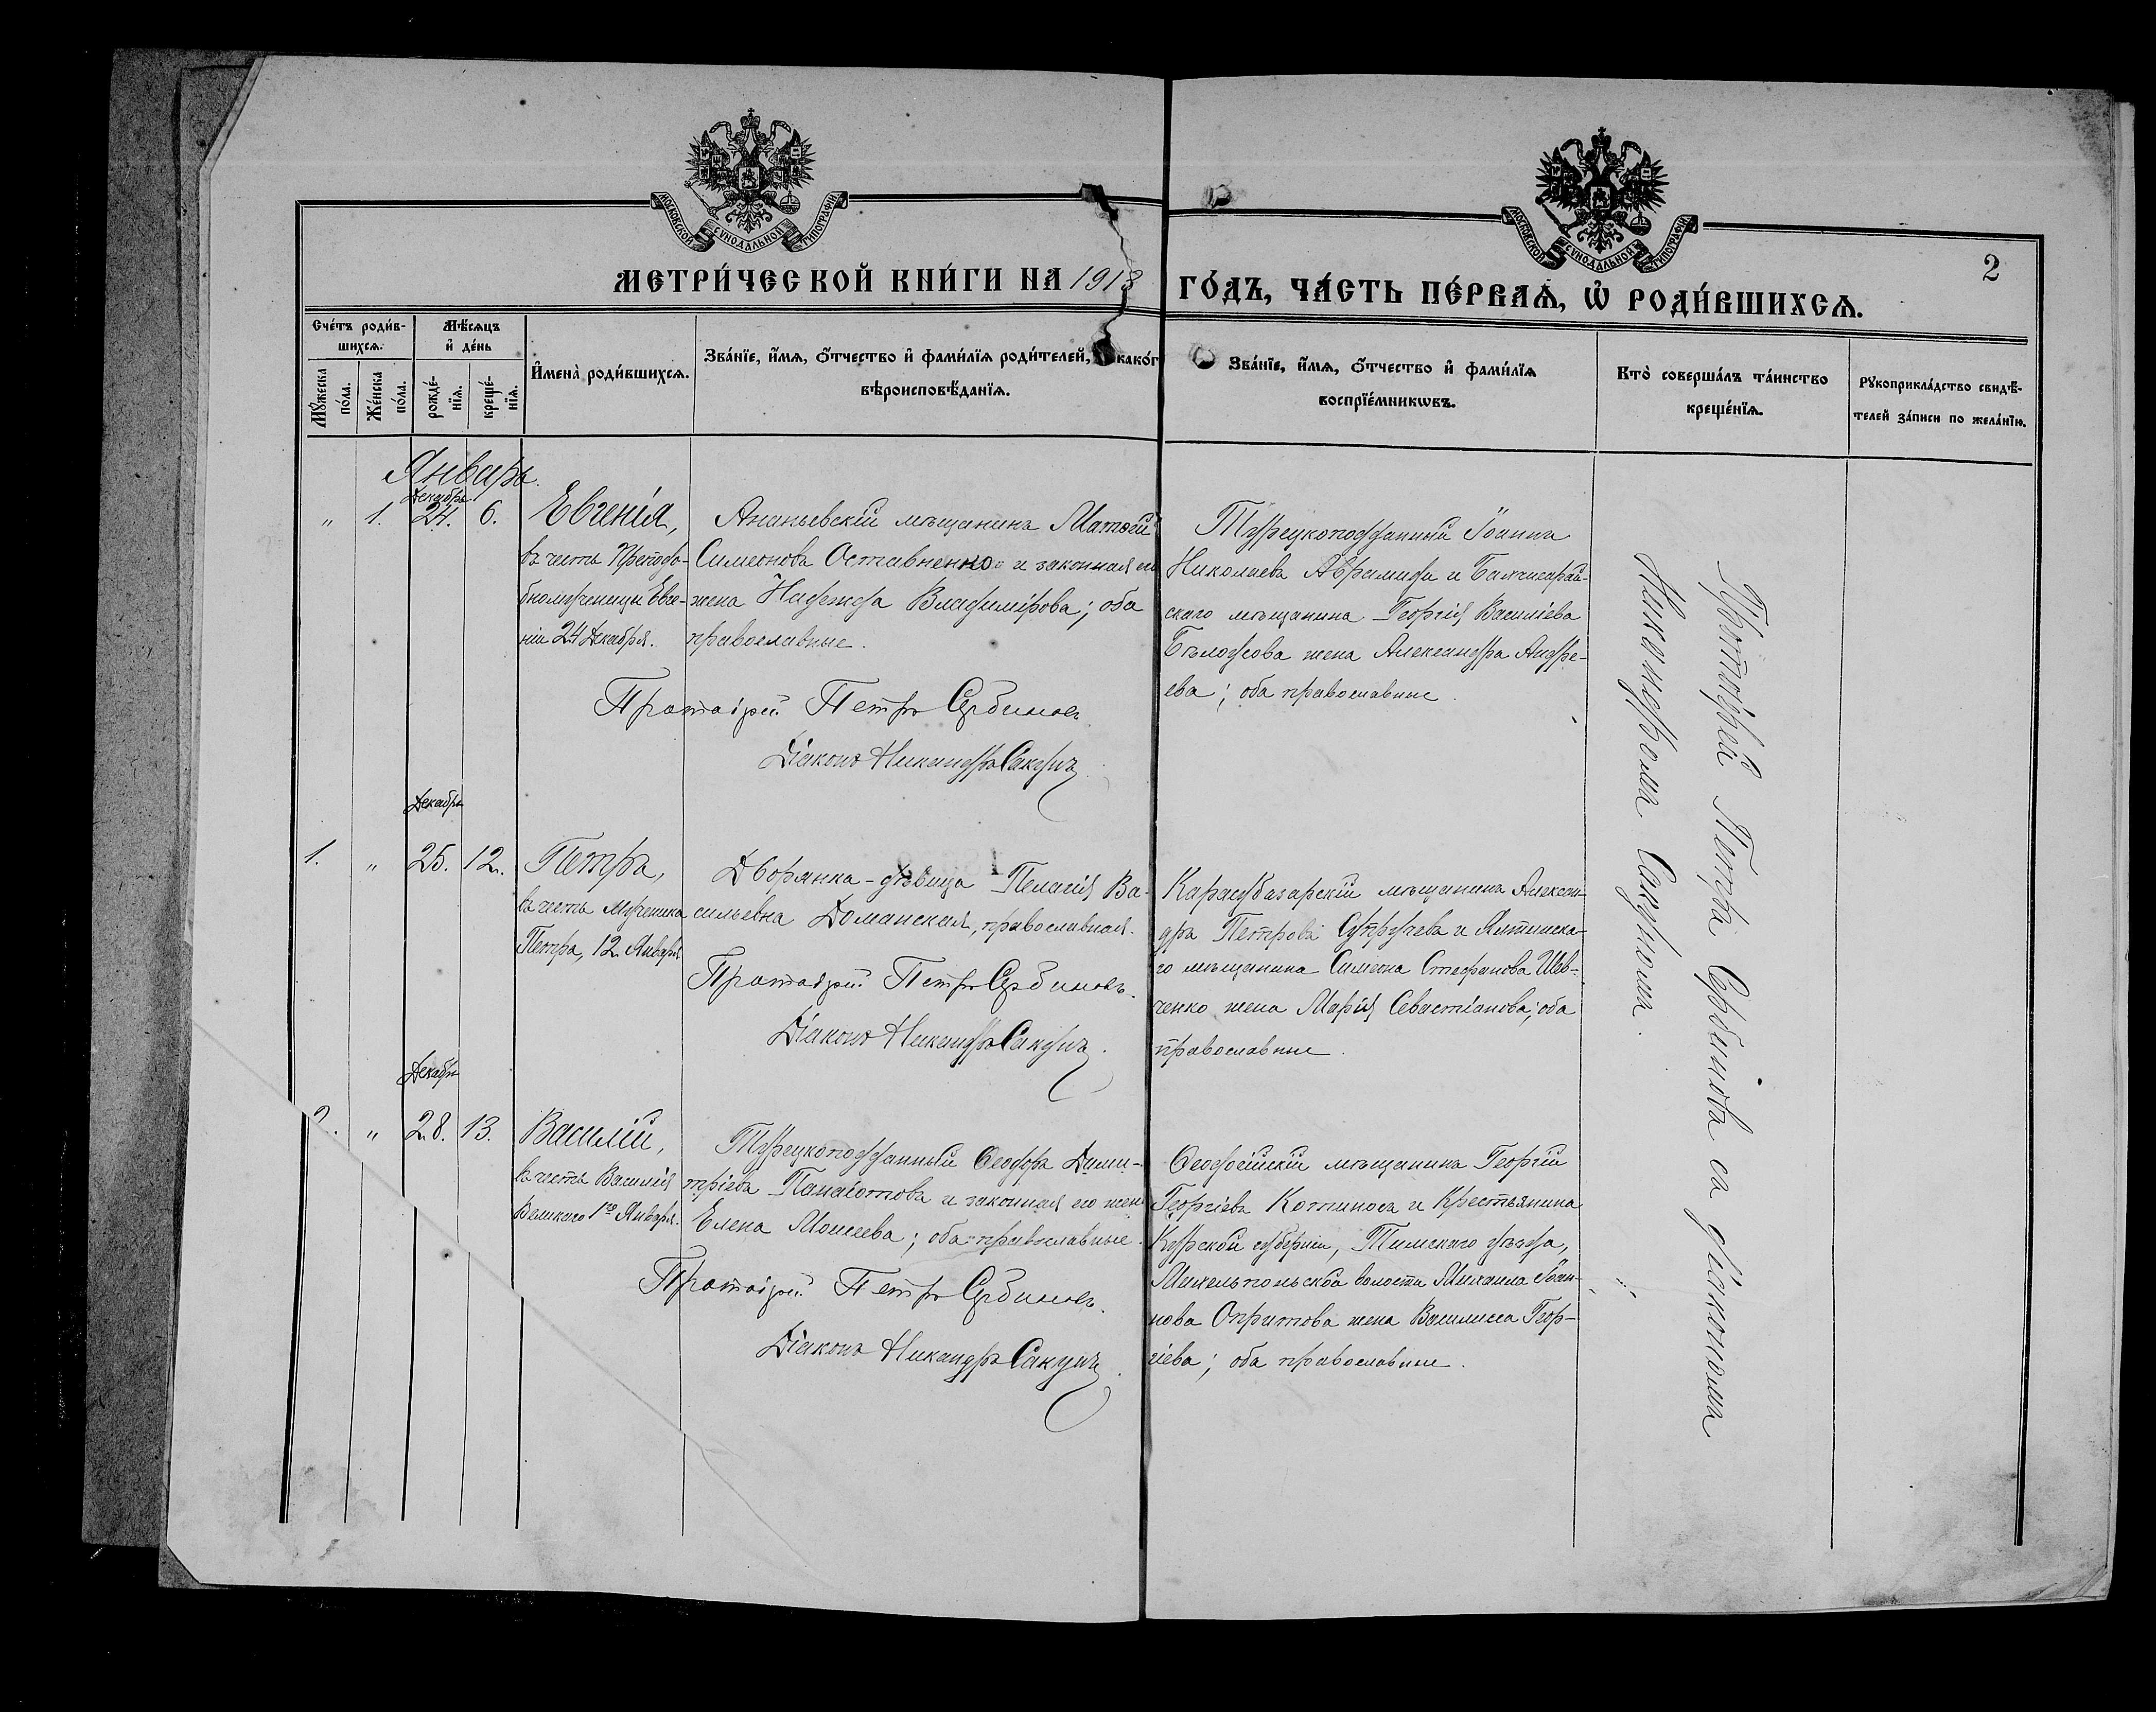 МОСКОВСКОЙ СѴНОДАЛЬНОЙ ТИПОГРАФІИ
МОСКОВСКОЙ СѴНОДАЛЬНОЙ ТИПОГРАФІИ
2
МЕТРИ́ЧЕСКОЙ КНИ́ГИ НА 1918 ГО́ДЪ, ЧА́СТЬ ПЕ́РВАѦ, Ѡ҆ РОДИ́ВШИХСѦ.
Сче́тъ роди́в-
шихсѧ.
Мꙋ́жеска по́ла.
Же́нска по́ла.
Мѣ́сѧцъ
и҆ де́нь
рожде́-
нїѧ.
креще́-
нїѧ.
И҆мена̀ роди́вшихсѧ.
Зва́нїе, и҆́мѧ, ѻ҆́тчество и҆ фами́лїѧ роди́телей, како́г
вѣроисповѣ́данїѧ.
Зва́нїе, и҆́мѧ, ѻ҆́тчество и҆ фами́лїѧ
воспрїе́мникѡвъ.
Кто̀ соверша́лъ та́инство
креще́нїѧ.
Рꙋкоприкла́дство свидѣ́-
телей за́писи по жела́нїю.
Январь.
Декабрь
" 1. 24. 6.
Евгенія,
въ честь Преподо-
бномученицы Евге-
ніи 24 Декабря.
Ананьевскій мѣщанинъ Матѳей
Симеоновъ Оставненко и законная его
жена Надежда Владимірова; оба
православные.
Протоіерей Петръ Сербиновъ.
Діаконъ Никандръ Сакунъ.
Турецкоподданный Іоаннъ
Николаевъ Аврамиди и Бахчисарай-
скаго мѣщанина Георгія Васильева
жена Александра Андре-
ева; оба православные.
Декабрь
1. " 25. 12.
Петръ,
въ честь мученика
Петра, 12 Января.
Дворянка-дѣвица Пелагія Ва-
сильевна Доманская, православная.
Протоіерей Петръ Сербиновъ.
Діаконъ Никандръ Сакунъ.
Карасубазарскій мѣщанинъ Алексан-
дръ Петровъ Супручевъ и Ялтинска-
го мѣщанина Симеона Стефанова Шев-
ченко жена Марія Севастіанова; оба
православные.
Декабрь
2. " 28. 13.
Василій,
въ честь Василія
Великаго 1го Января.
Турецкоподданный Ѳеодоръ Дими-
тріевъ Панаіотовъ и законная его жена
Елена Моисеева; оба православные.
Протоіерей Петръ Сербиновъ.
Діаконъ Никандръ Сакунъ.
Ѳеодосійскій мѣщанинъ Георгій
Георгіевъ Котиносъ и крестьянина
Курской губерніи, Тимскаго уѣзда,
волости Михаила Іоан-
нова жена Василиса Геор-
гіева; оба православные.
Протоіерей Петръ Сербиновъ съ діакономъ
Никандромъ Сакуномъ.